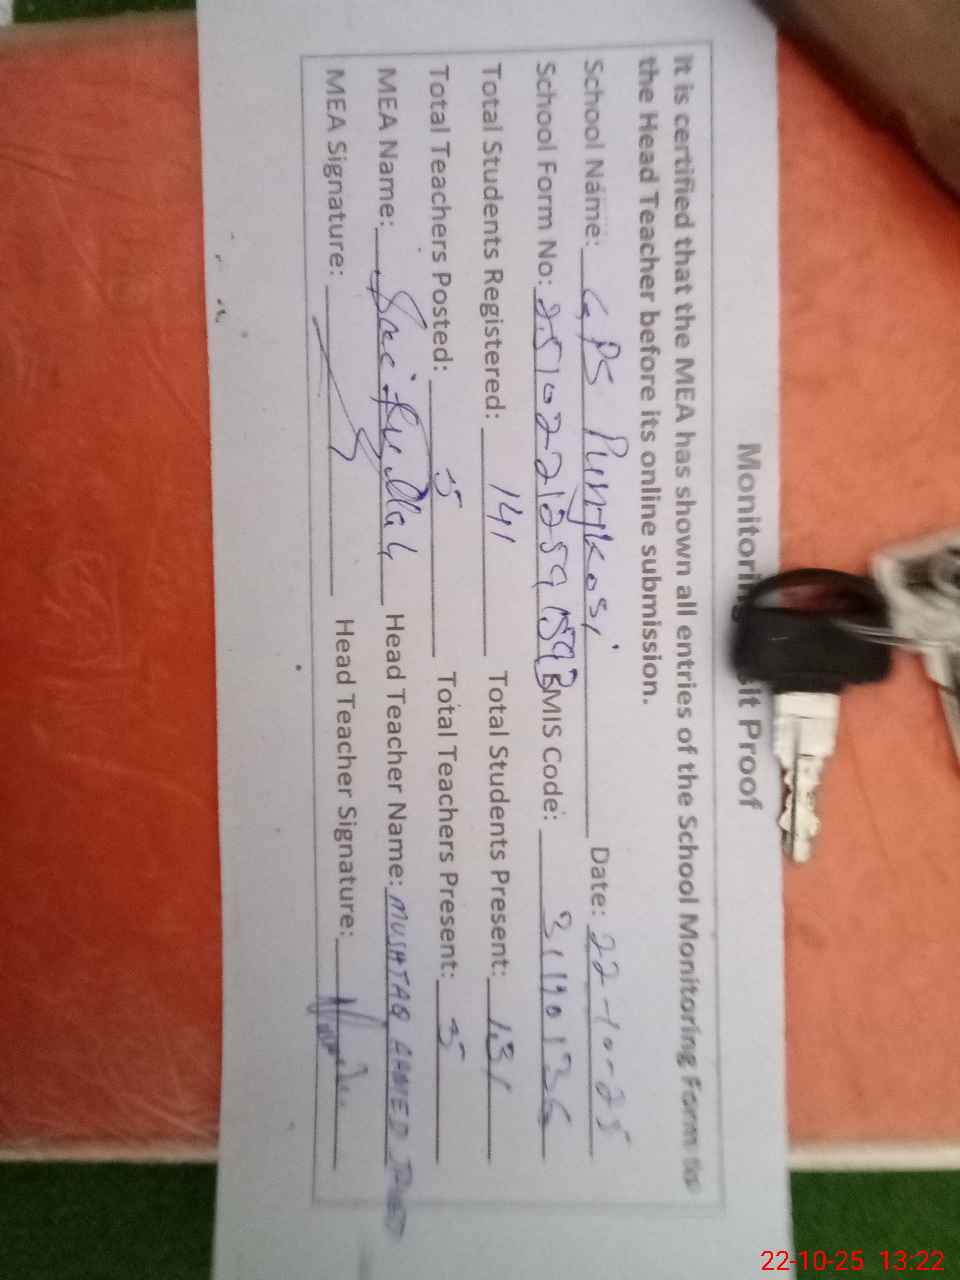 Monitoring Visit Proof
It is certified that the MEA has shown all entries of the School Monitoring Form to
the Head Teacher before its online submission.
School Name: GPS Punjkosi Date: 22-10-25
School Form No: EMIS Code: 31140136
Total Students Registered: 141 Total Students Present: 131
Total Teachers Posted: 5 Total Teachers Present: 5
MEA Name: Head Teacher Name: MUSHTAQ AHMED
MEA Signature: Head Teacher Signature:
22-10-25 13:22